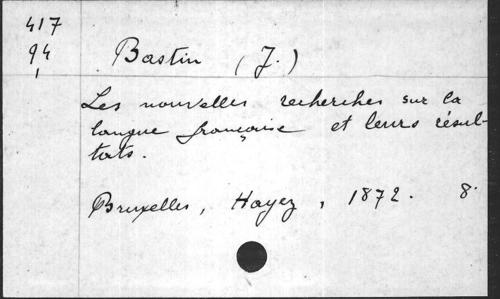 417
94
1
Bastin (J.)
Les nouvelles recherches sur la
langue française et leurs résul-
tats.
Bruxelles, Hayez, 1872. 8.